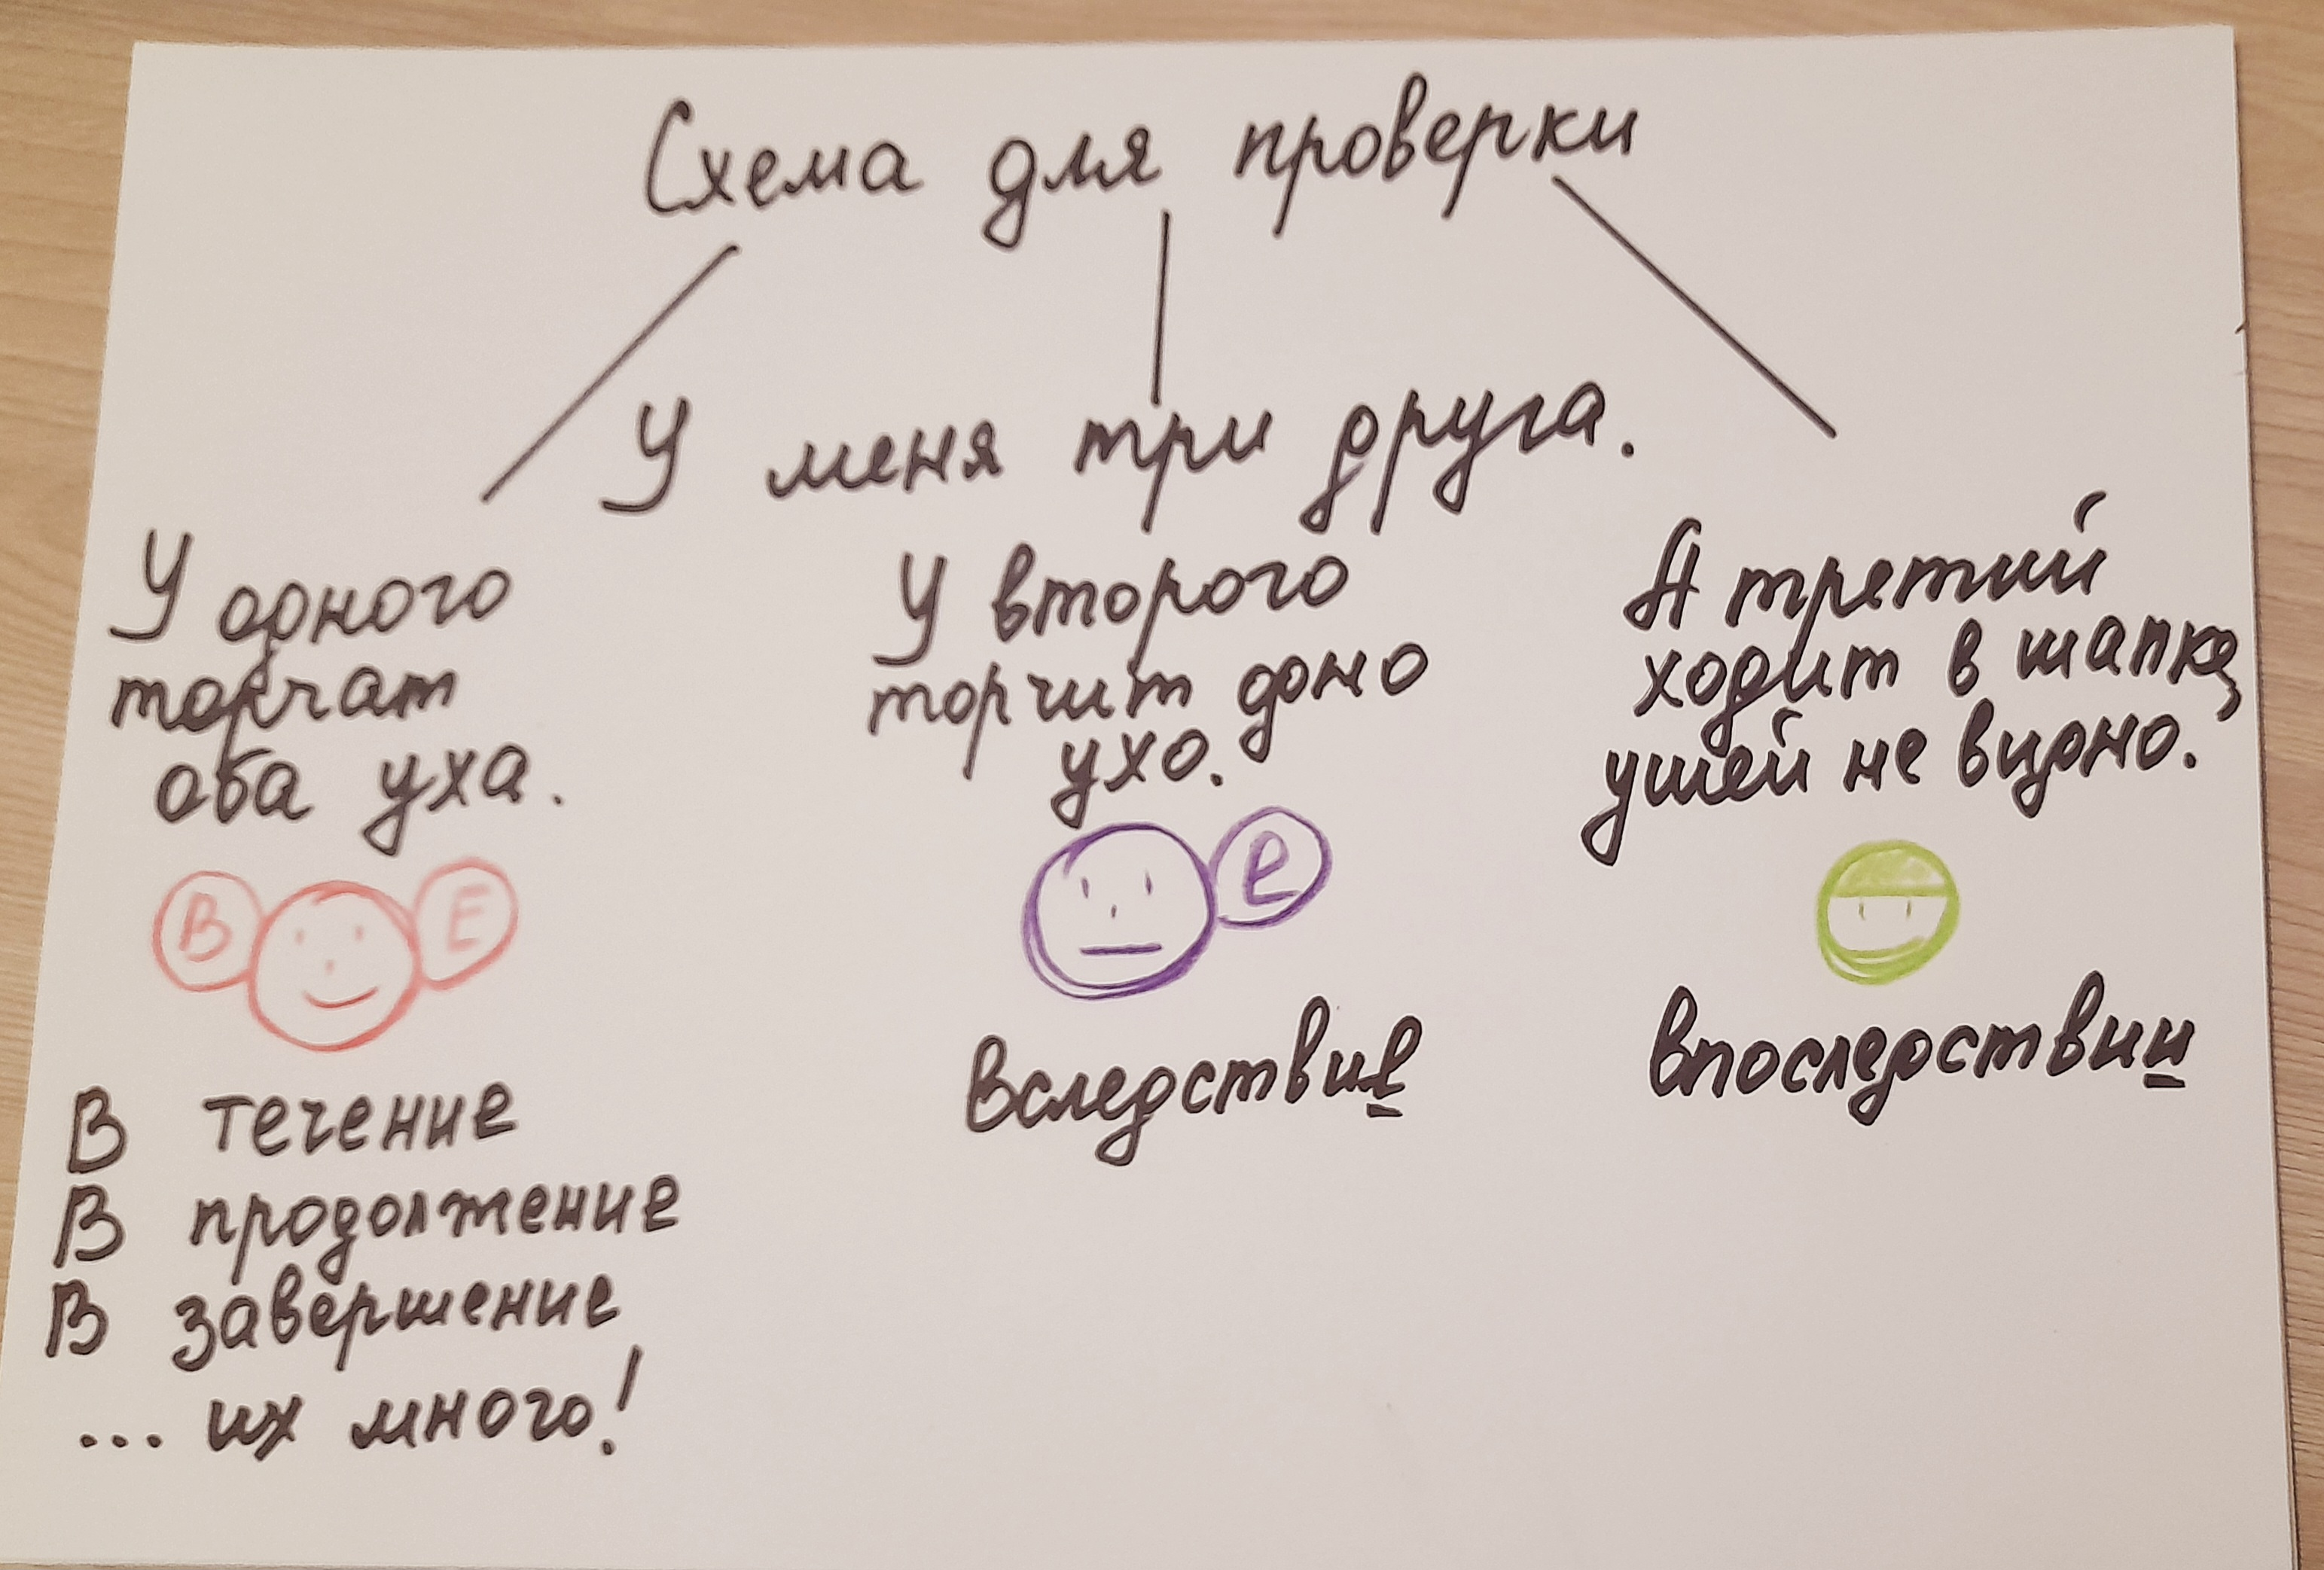 Схема для проверки
У меня три друга.
У одного
торчат
оба уха.
В Е
В течение
В продолжение
В завершение
... их много!
У второго
торчит одно
ухо.
е
Вследствие
А третий
ходит в шапке,
ушей не видно.
впоследствии